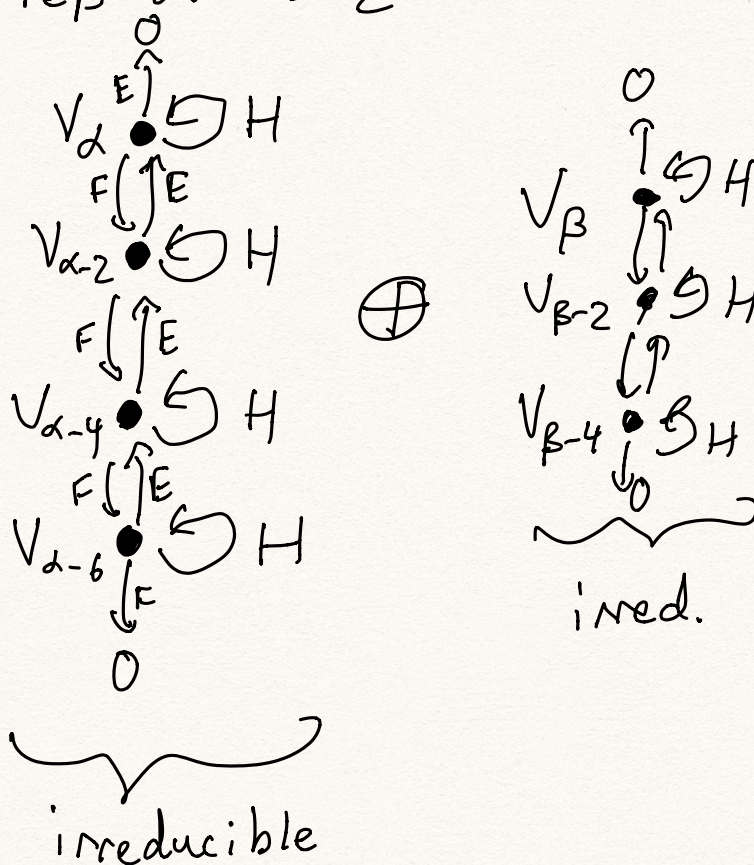 O
E
V_α H
F E
V_{α-2} H
F E
V_{α-4} H
F E
V_{α-6} H
F
O
irreducible
⊕
O
V_β H
V_{β-2} H
V_{β-4} H
O
irred.